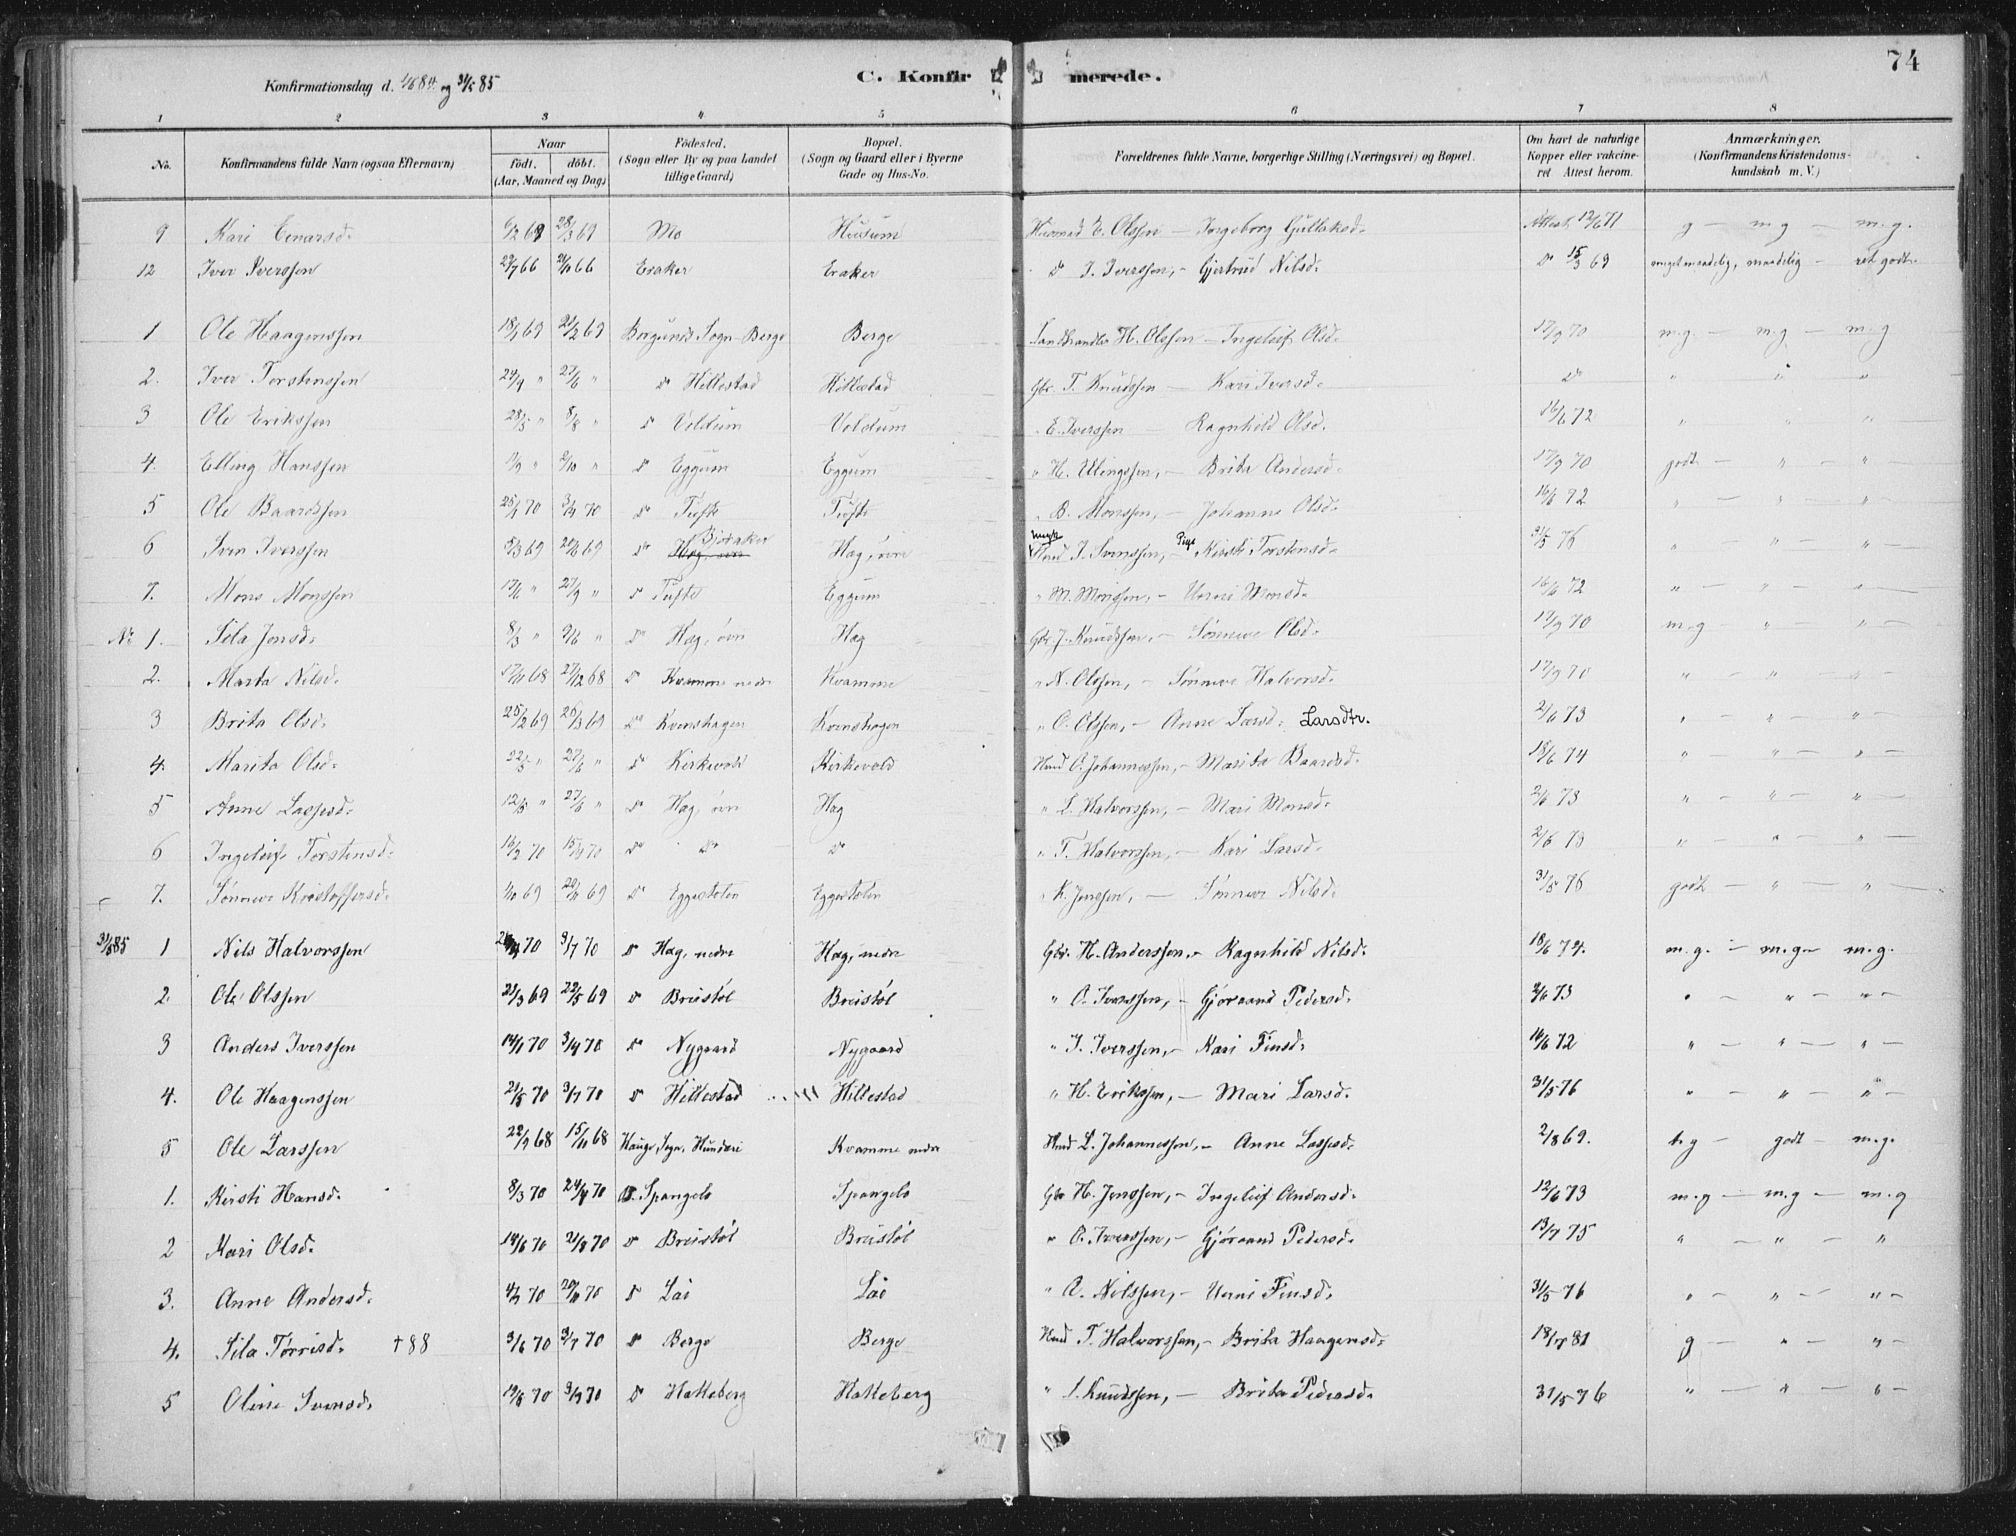 74
Konfirmationsdag d. 1/6 84. og 31/5 85
C. Konfir merede.
1 2 3 4 5 6 7 8
No. Konfirmandens fulde Navn (ogsaa Efternavn) Naar født. døbt. (Aar, Maaned og Dag) Födested. (Sogn eller By og paa Landet tillige Gaard) Bopæl. (Sogn og Gaard eller i Byerne Gade og Hus-No. Forældrenes fulde Navne, borgerlige Stilling (Næringsvei) og Bopæl. Om havt de naturlige Kopper eller vakcineret Attest herom. Anmærkninger. (Konfirmandens Kristendomskundskab m. V.)
9 Kari Einarsd. 6/2 69 28/3 69 Mo Husum Husmd E. Olssen — Ingeborg Gullaksd. Attest 12/6 71 g — m g — m.g.
12 Iver Iverssen 29/7 66 66 Eraker Eraker do I. Iverssen, – Gjertrud Nilsd. do 15/3 69 meget maadelig, maadelig — ret godt
1 Ole Haagenssen 18/1 69 21/2 69 Borgunds Sogn - Berge Berge Landhandler H. Olssen — Ingeleif Olsd. 17/9 70 m.g. — m.g — m.g
2. Iver Torstenssen 24/4 " 27/6 " do Hillestad Hillestad Gbr. T. Knudssen — Kari Iversd. do " " "
3 Ole Erikssen 28/5 " 8/8 " do Voldum Voldum " E. Iverssen — Ragnhild Olsd. 16/6 72 " " "
4. Elling Hanssen " /10 " do Eggum Eggum " H. Ellingssen, – Brita Andersd. 17/9 70 godt — " — " —
5 Ole Baardssen 25/1 70 3/4 70 do Tufte Tufte " B. Monssen, – Johanne Olsd. 16/6 72 " — " — " —
6 Sven Iverssen 5/3 69 69 do Hag, övre Björaker Hag, övre Ungk I. Svenssen, – Pige Kirsti Torstensd. 31/5 76 " — " — " —
7. Mons Monssen 17/6 " 27/9 " do Tufte Eggum " M. Monssen, – Unni Monsd. 16/6 72 " — " — " —
No 1. Sila Jonsd. 8/3 " 9/6 " do Hag, övre Hag Gbr. J. Knudssen. – Sönneve Olsd. 17/9 70 m.g — " — " —
2. Marta Nilsd. 17/11 68 27/12 68 do Kvamme nedre Kvamme " N. Olssen, – Sönneve Halvorsd. 17/9 70 " — " — " —
3 Brita Olsd. 25/2 69 25/3 69 do Kvenshagen Kvenshagen " O. Olssen, – Anne Larsd. Larsdtr. 2/6 73 " — " — " —
4. Marita Olsd. 22/5 " 27/6 " do Kirkevold Kirkevold Hmd O. Johannessen, – Marita Baardsd. 18/6 74 " — " — " —
5 Anne Lassesd. 12/5 " 27/6 " do Hag, övre Hag " L. Halvorssen, – Mari Monsd. 2/6 73 " — " — " —
6 Ingeleif Torstensd. 16/2 70 15/4 70 do do do " T. Halvorssen, – Kari Larsd. 2/6 73 " — " — " —
7. Sönneve Kristoffersd. /10 69 /11 69 do Eggestölen Eggestölen " K. Jenssen, — Sönneve Nilsd. 31/5 76 godt — " — " —
31/5 85 1 Nils Halvorssen 70 3/7 70 do Hag, nedre Hag, nedre Gbr. H. Anderssen. – Ragnhild Nilsd. 18/6 74. m.g. — m.g — m.g.
2. Ole Olssen 21/3 69 22/5 69 do Breistöl Breistöl " O. Iverssen, – Gjöraand Pedersd. 2/6 73 " — " — " —
3 Anders Iverssen 14/1 70 3/4 70 do Nygaard Nygaard " I. Iverssen, – Kari Finsd. 16/6 72 " — " — " —
4. Ole Haagenssen 21/5 70 3/7 70 do Hillestad Hillestad " H. Erikssen, – Mari Larsd. 31/5 76 " — " — " —
5 Ole Larssen 22/9 68 15/11 68 Hauge Sogn, Hundere Kvamme nedre Hmd L. Johannessen, – Anne Lassesd. 2/8 69. t.g — godt — m.g.
1. Kirsti Hansd. 8/3 70 24/4 70 B. Spangelo Spangelo Gbr H. Jenssen, – Ingeleif Andersd. 12/6 73 m.g — m.g — m.g
2 Kari Olsd. 14/6 70 21/8 70 do Breistöl Breistöl " O. Iverssen, – Gjöraand Pedersd. 13/7 75 " — " — "
3. Anne Andersd. 4/9 70 20/11 70 do Lai Lai " A. Nilssen, – Unni Finsd. 31/5 76 " — " — " —
4. Sila Törrisd. † 88 3/6 70 3/7 70 do Berge Berge Hmd T. Halvorssen, – Brita Haagensd. 18/ 81 g — " — " —
5 Oline Svensd. 19/5 70 3/7 70 do Hatteberg Hatteberg " S. Knudssen, – Brita Pedersd. 31/5 76 " — " — " —